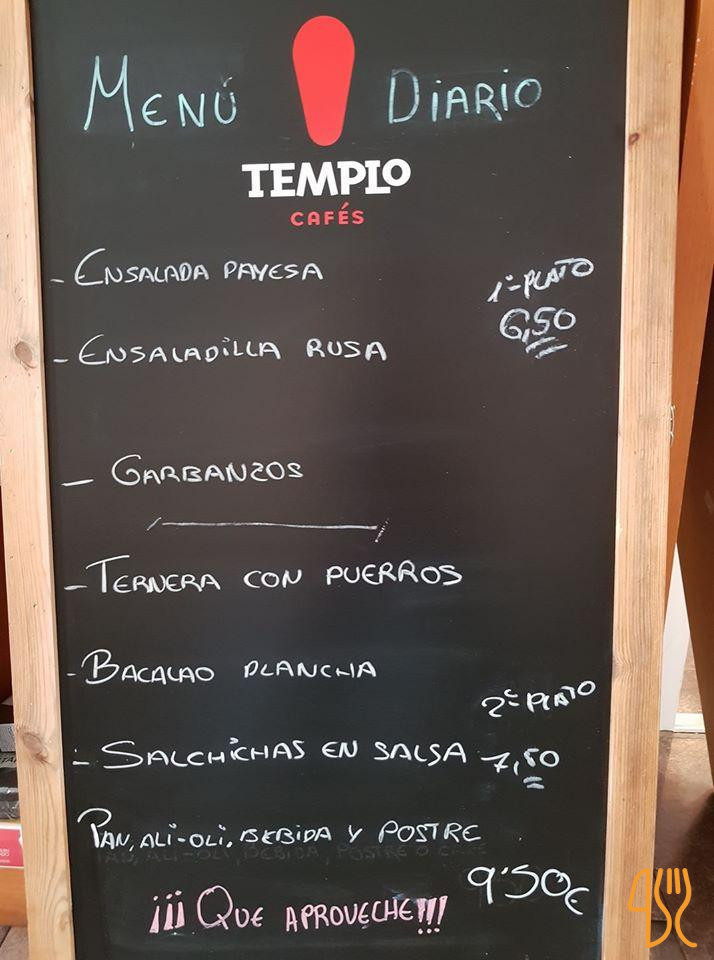 MENÚ DIARIO
TEMPLO
CAFÉS
- ENSALADA PAYESA
1º PLATO
6,50
- ENSALADILLA RUSA
- GARBANZOS
- TERNERA CON PUERROS
- BACALAO PLANCHA
2º PLATO
- SALCHICHAS EN SALSA 7,50
PAN, ALI-OLI, BEBIDA Y POSTRE
9'50€
¡¡¡ QUE APROVECHE!!!